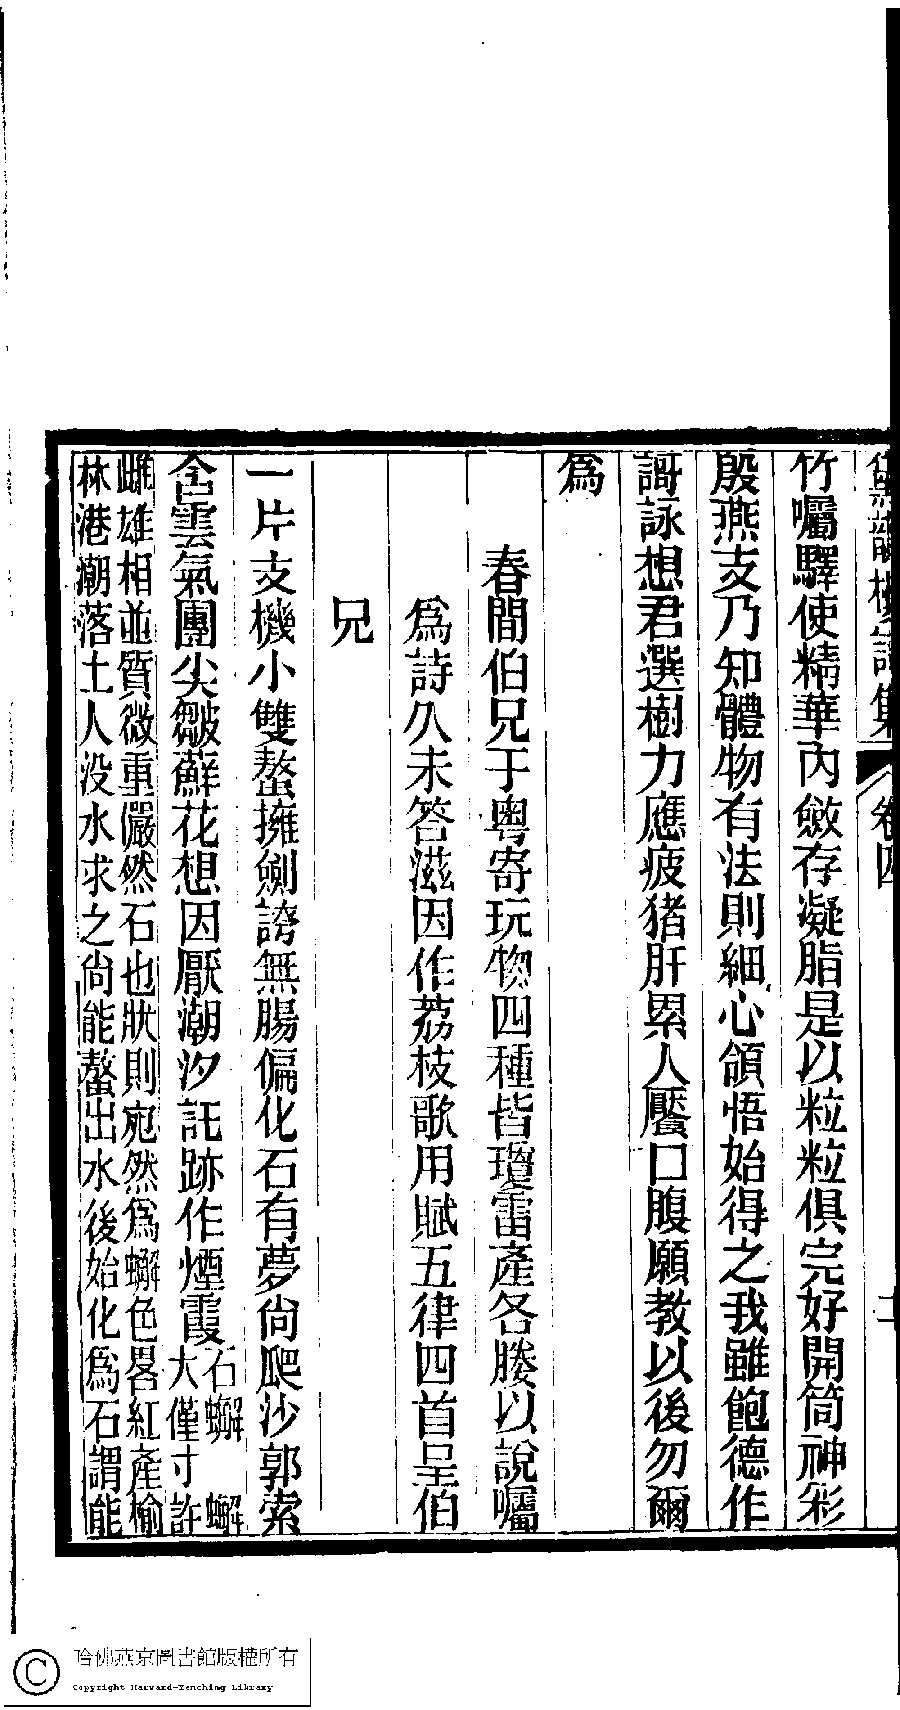 韻樓詩集 卷四
竹囑驛使精華內斂存凝脂是以粒粒俱完好開筒神彩
殷燕支乃知體物有法則細心領悟始得之我雖飽德作
謌詠想君選樹力應疲猪肝累人饜口腹願教以後勿爾
為
春間伯兄于粵寄玩物四種皆瓊雷產各媵以說囑
為詩久未答滋因作荔枝歌用賦五律四首呈伯
兄
一片支機小雙螯擁劍誇無腸偏化石有夢尚爬沙郭索
含雲氣團尖皺蘚花想因厭潮汐託跡作煙霞
石蠏 蠏
大僅寸許
雌雄相並質微重儼然石也狀則宛然為蠏色畧紅產榆
林港潮落土人没水求之尚能螯出水後始化為石謂能
哈佛燕京圖書館版權所有
Copyright Harvard-Yenching Library